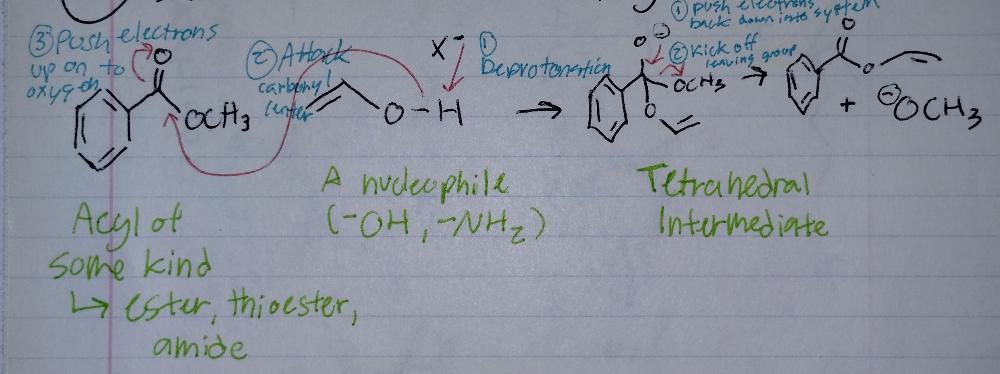 ③ Push electrons
up on to
oxygen
O
OCH3
② Attack
carbonyl
center
O-H
X-
①
Deprotonation
① push electrons
back down into system
② Kick off
leaving group
O⊖
OCH3
O
O
O
+ ⊖OCH3
Acyl of
some kind
↳ ester, thioester,
amide
A nucleophile
(-OH, -NH2)
Tetrahedral
Intermediate